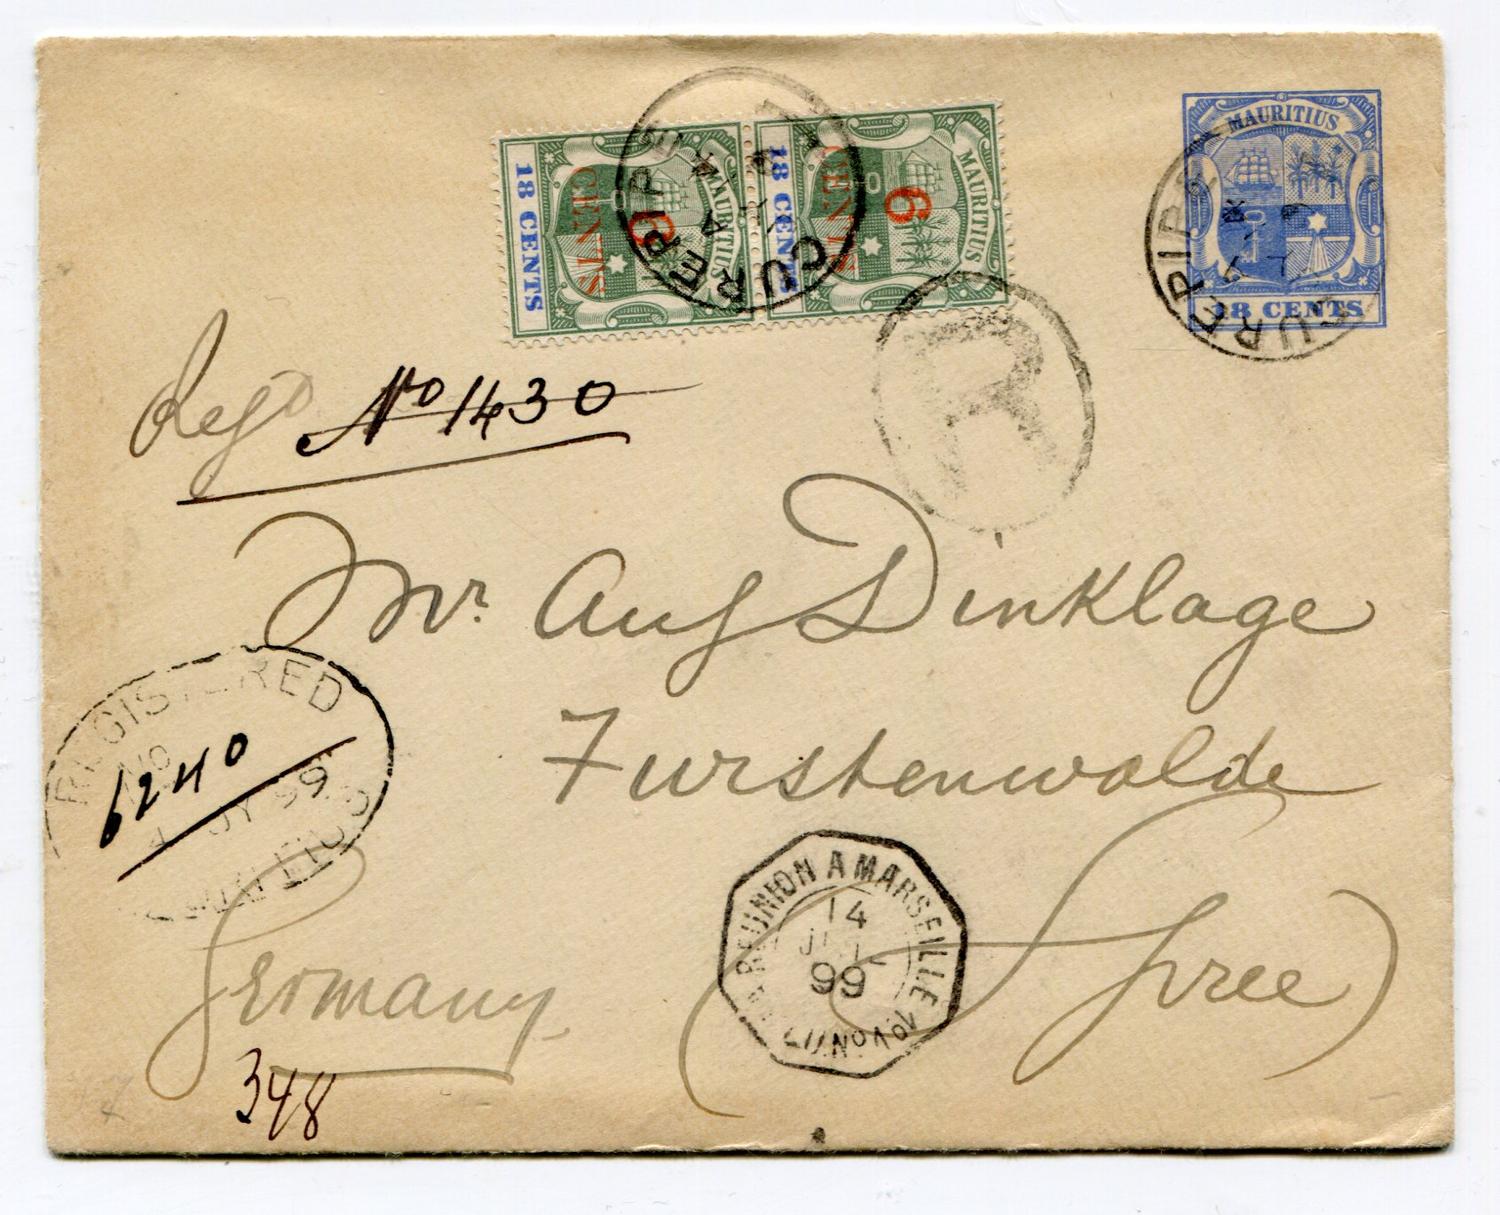 MAURITIUS
18 CENTS
6
CENTS
MAURITIUS
18 CENTS
6
CENTS
MAURITIUS
18 CENTS
CUREPIPE
A
CUREPIPE
A
R
Regd No 1430
Mr. Aug Dinklage
Furstenwalde
(Spree)
Germany
REGISTERED
No
6240
JY 99
MAURITIUS
REUNION A MARSEILLE
14
JUIL
99
L.V No 1
348